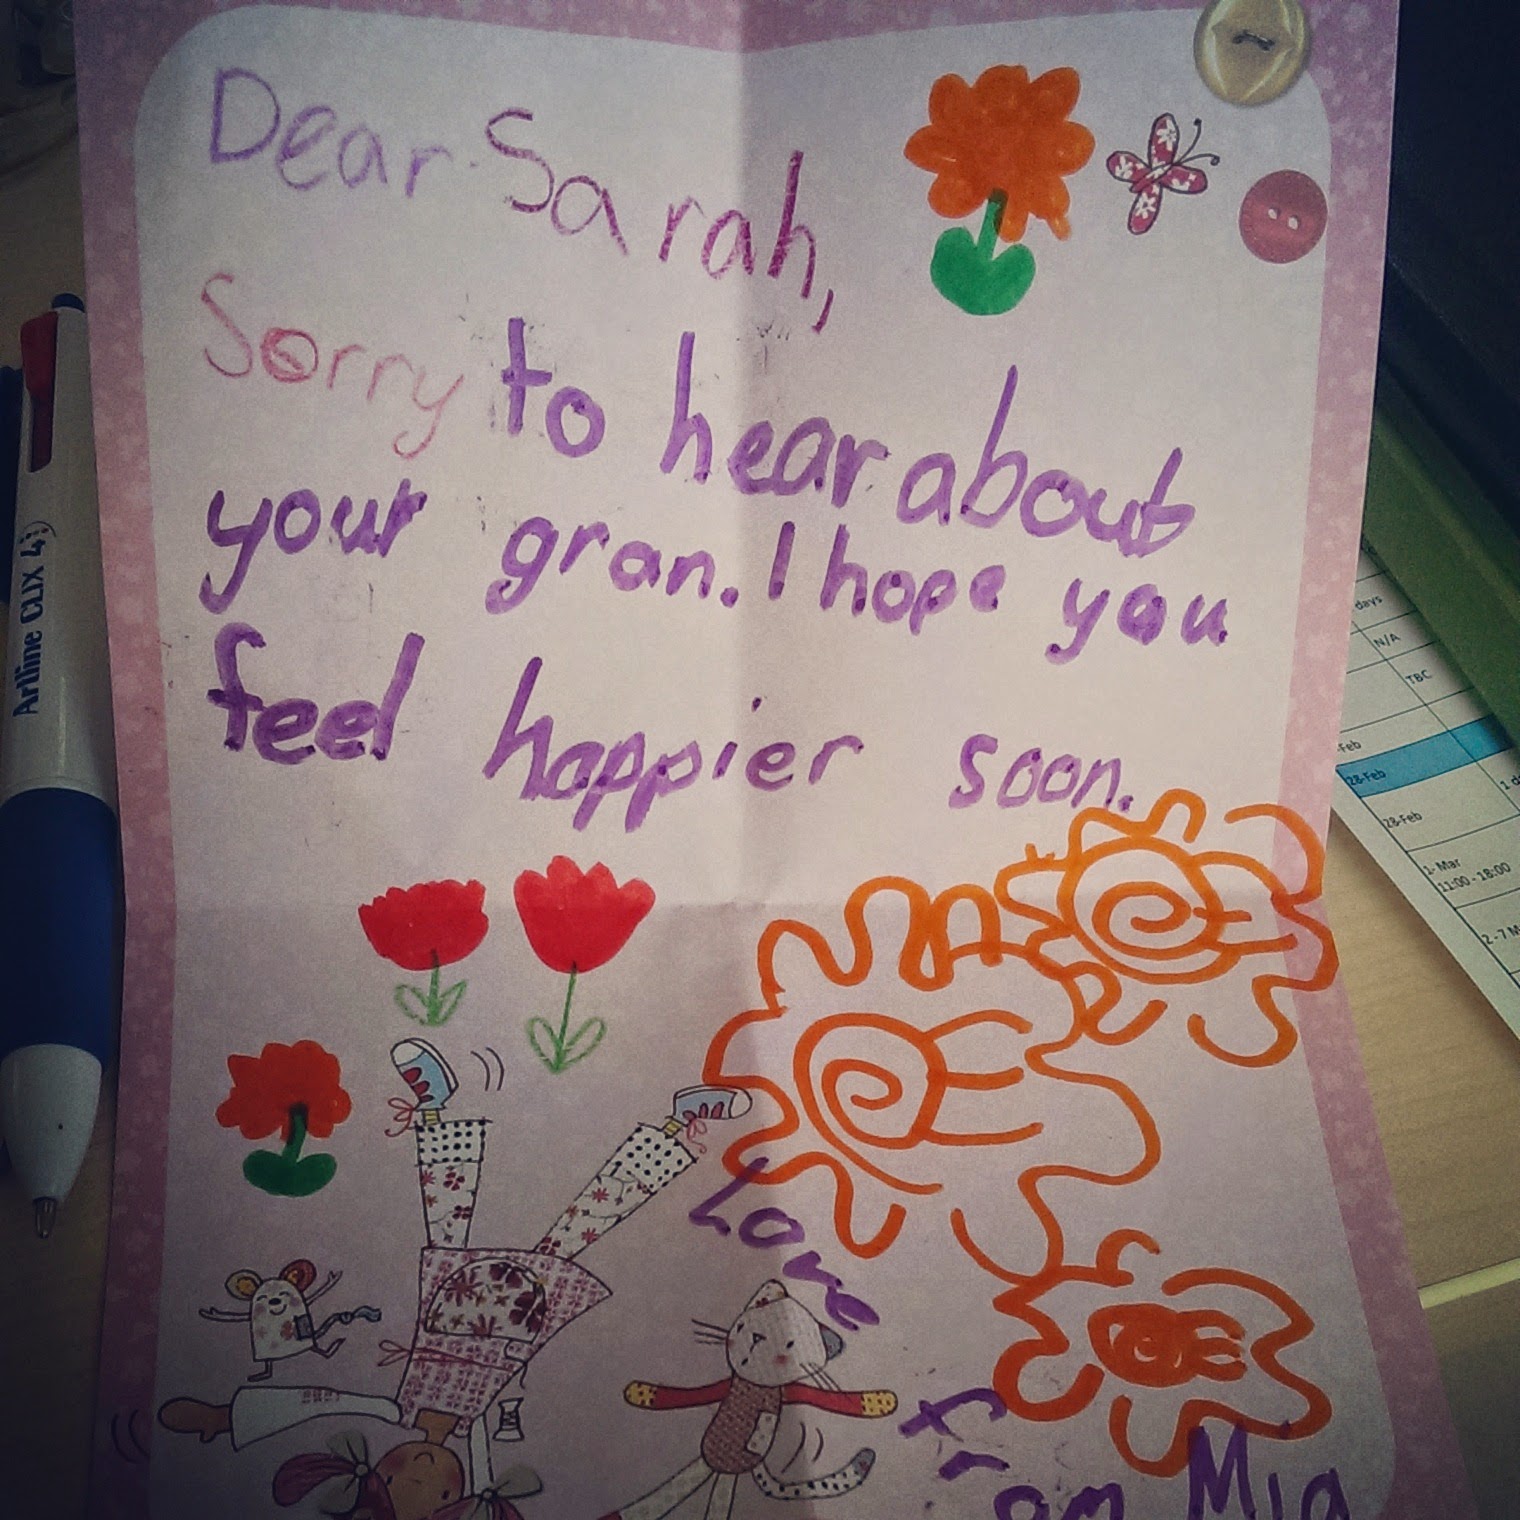 Dear Sarah,
Sorry to hear about
your gran. I hope you
feel happier soon.
Love
from Mia
Artline CLIX 4
days
N/A
TBC
-Feb
28-Feb
28-Feb
1- Mar
11:00 - 18:00